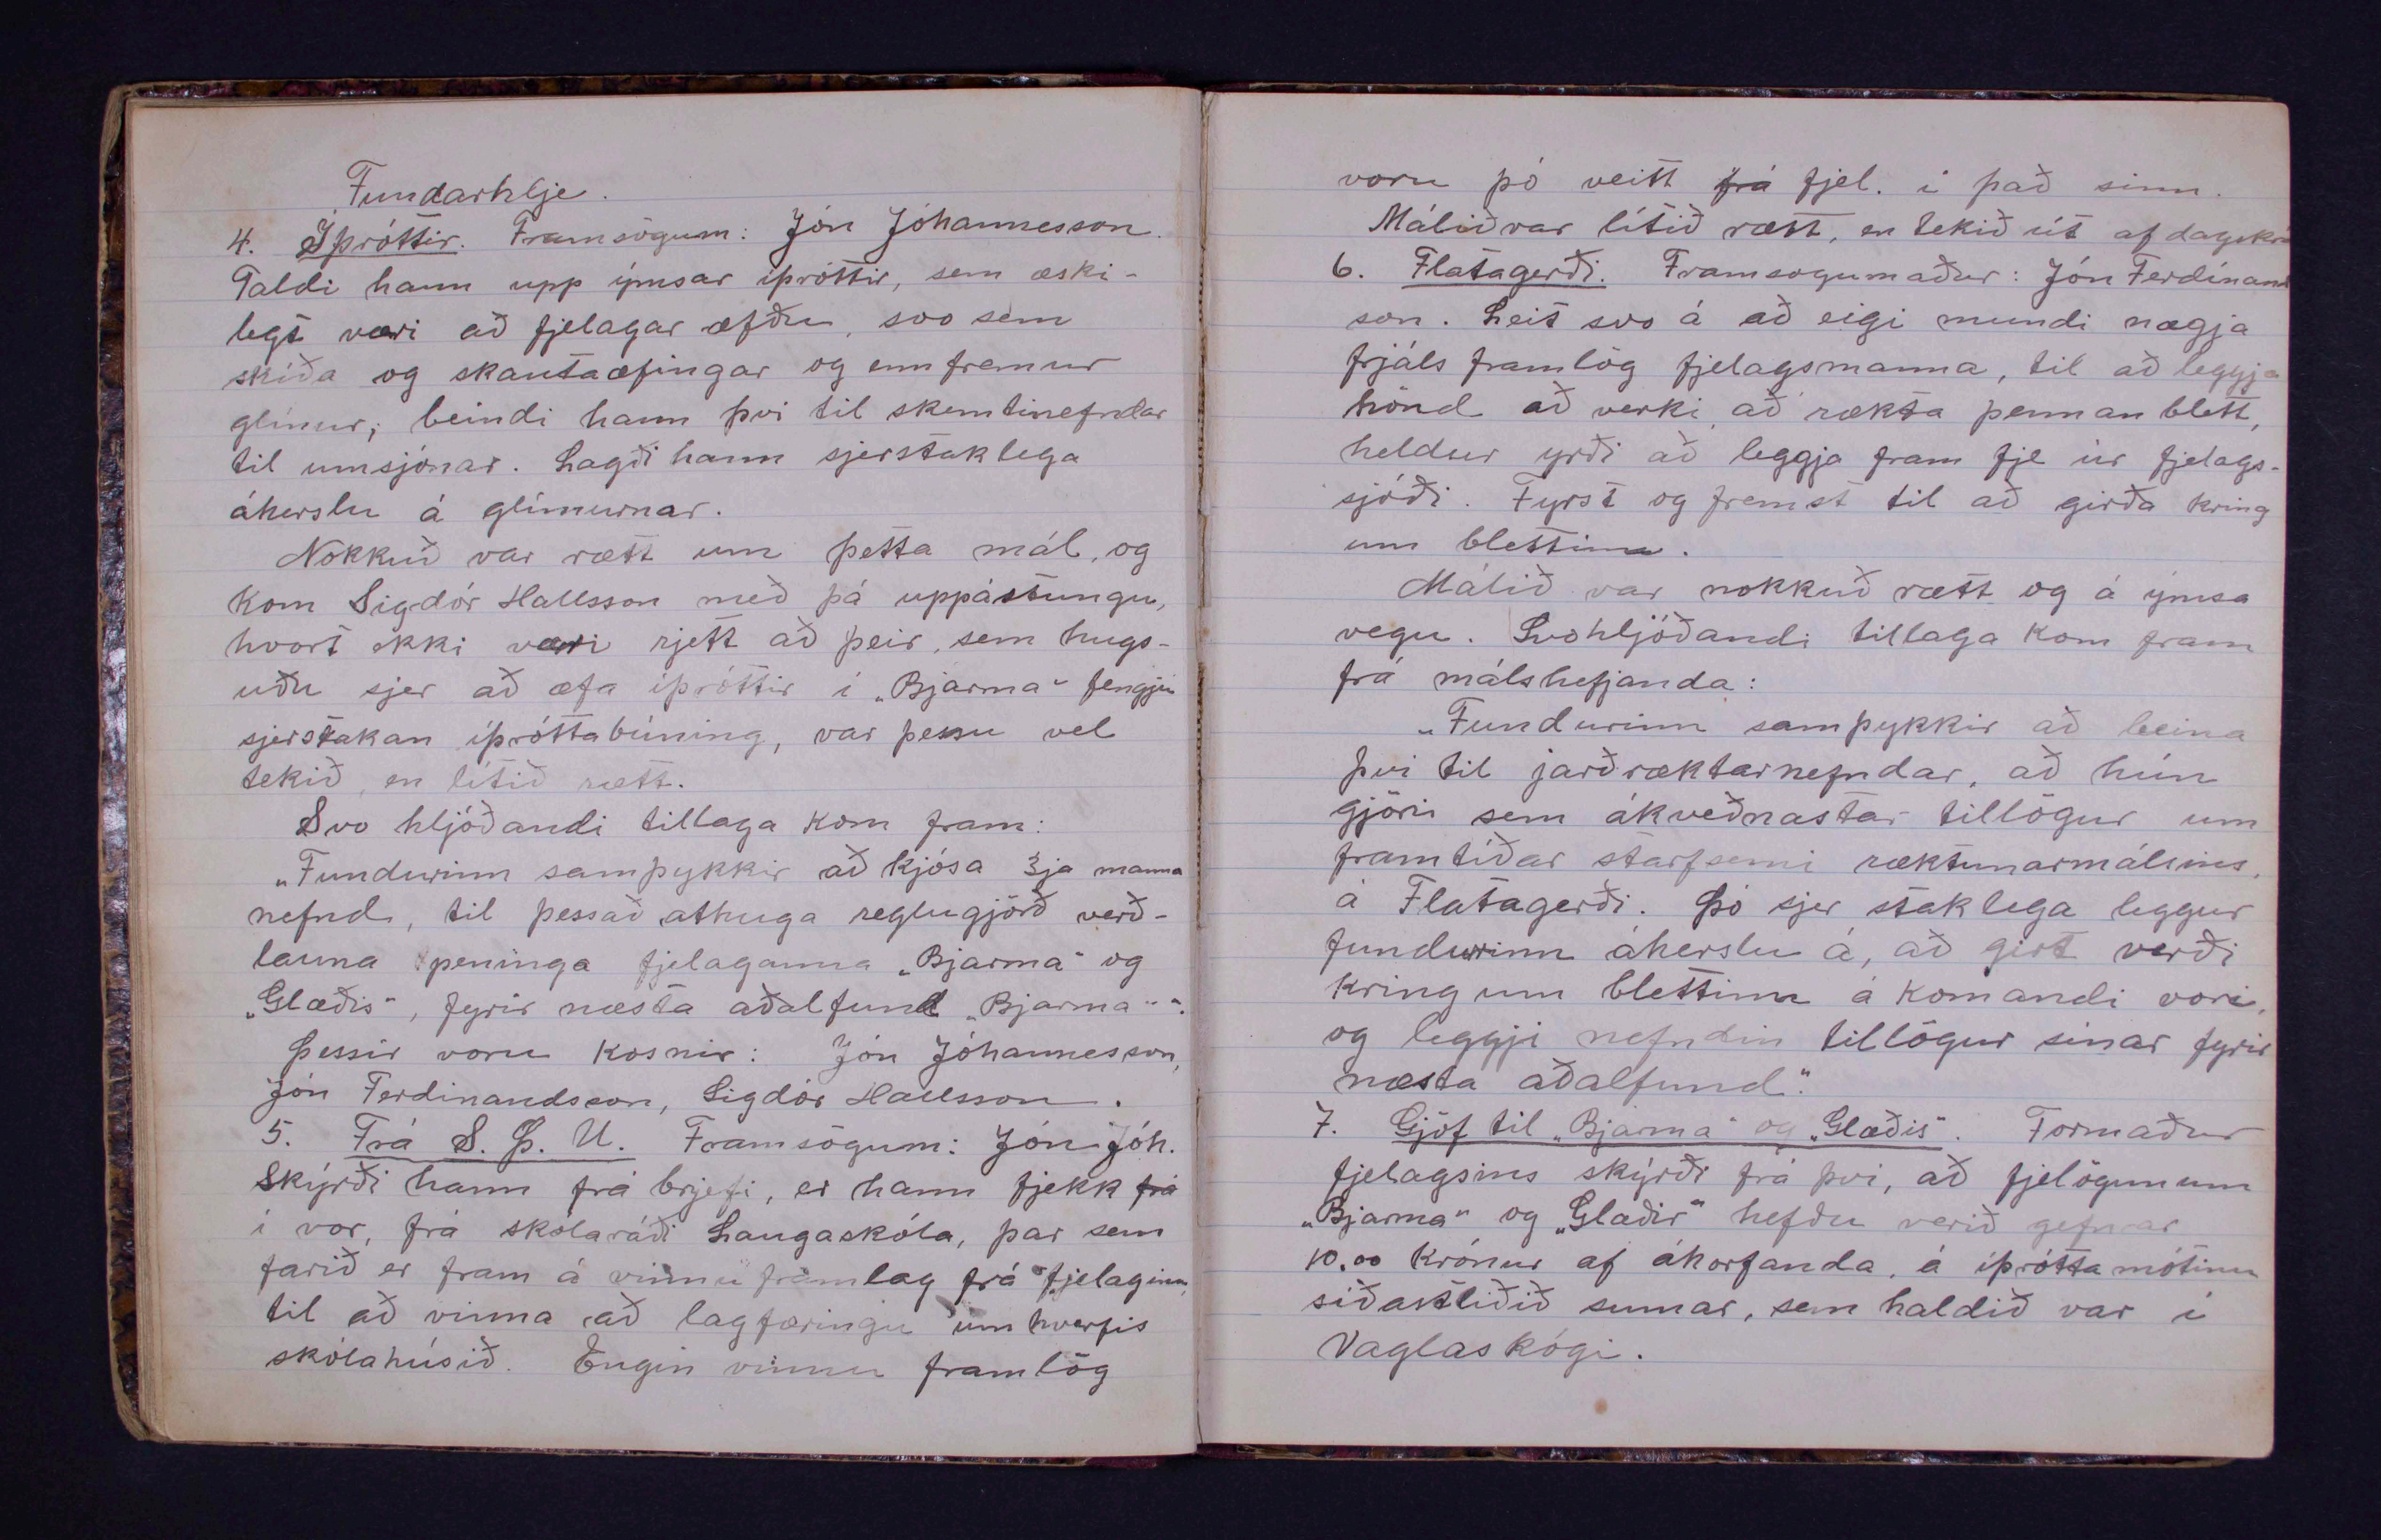 Fundarhlje.
4. Íþróttir. Framsögum: Jón Jóhannesson.
Taldi hann upp ýmsar íþróttir, sem æski-
legt væri að fjelagar æfðu, svo sem
skíða og skautaæfingar og ennfremur
glímur, beindi hann því til skemtinefndar
til umsjónar. Lagði hann sjerstaklega
áherslu á glímurnar.
Nokkuð var rætt um þetta mál, og
kom Sigdór Hallsson með þá uppástungu,
hvort ekki væri rjett að þeir, sem hugs-
uðu sjer að æfa íþróttir í „Bjarma" fengju
sjerstakan íþróttabúning, var þessu vel
tekið, en lítið rætt.
Svo hljóðandi tillaga kom fram:
„Fundurinn samþykkir að kjósa 3ja manna
nefnd, til þessað athuga reglugjörð verð-
launa peninga fjelaganna „Bjarma" og
„Glæðis", fyrir næsta aðalfund „Bjarma"".
Þessir voru kosnir: Jón Jóhannesson,
Jón Ferdinandsson, Sigdór Hallsson.
5. Frá S. Þ. U. Framsögum: Jón Jóh.
Skýrði hann frá brjefi, er hann fjekk frá
í vor, frá skólaráði Laugaskóla, þar sem
farið er fram á vinnuframlag frá fjelaginu,
til að vinna að lagfæringu umhverfis
skólahúsið. Engin vinnu framlög
voru þó veitt frá fjel. í það sinn.
Málið var lítið rætt, en tekið út af dagskrá
6. Flatagerði. Framsogumaður: Jón Ferdínand
son. Leit svo á að eigi mundi nægja
frjáls framlög fjelagsmanna, til að leggja
hönd að verki, að rækta þennan blett,
heldur yrði að leggja fram fje úr fjelags-
sjóði. Fyrst og fremst til að girða kring
um blettinn.
Málið var nokkuð rætt og á ýmsa
vegu. Svohljóðandi tillaga kom fram
frá málshefjanda:
„Fundurinn samþykkir að beina
því til jarðræktarnefndar, að hún
gjöri sem ákveðnastar tillögur um
framtíðar starfsemi ræktunarmálsins,
á Flatagerði. Þó sjer staklega leggur
fundurinn áherslu á, að girt verði
kring um blettinn á komandi vori,
og leggji nefndin tillögur sínar fyrir
næsta aðalfund".
7. Gjöf til „Bjarma" og „Glæðis". Formaður
fjelagsins skýrði frá því, að fjelögunum
„Bjarma" og „Glæðir" hefðu verið gefnar
10.00 krónur af áhorfanda, á íþrótta mótinu
síðastliðið sumar, sem haldið var í
Vaglaskógi.